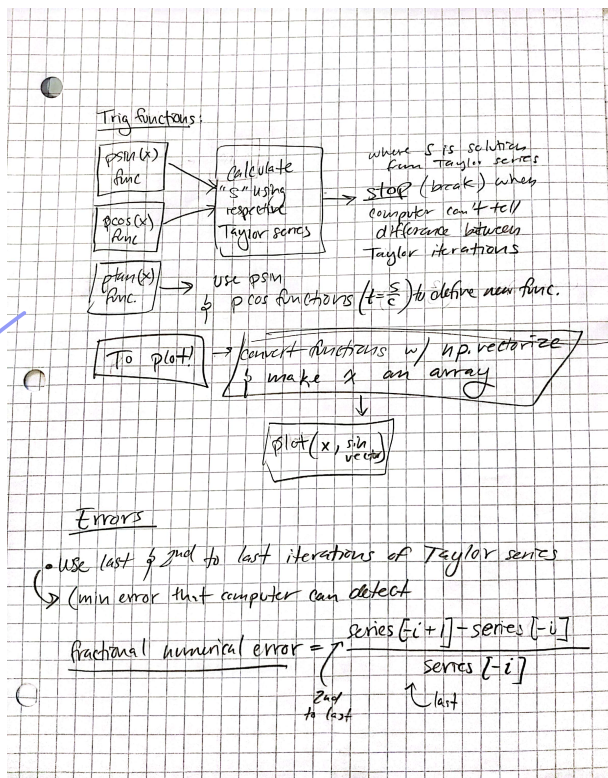 Trig functions:
psin(x)
func
pcos(x)
func
Calculate
"S" using
respective
Taylor series
where S is solution
from Taylor series
stop (break) when
computer can't tell
difference between
Taylor iterations
ptan(x)
func.
use psin
& pcos functions (t=s/c) to define new func.
To plot!
convert functions w/ np.vectorize
& make x an array
plot(x, sin vector)
Errors
• use last & 2nd to last iterations of Taylor series
(min error that computer can detect
fractional numerical error = series[-i+1]-series[-i]
series[-i]
2nd
to last
last